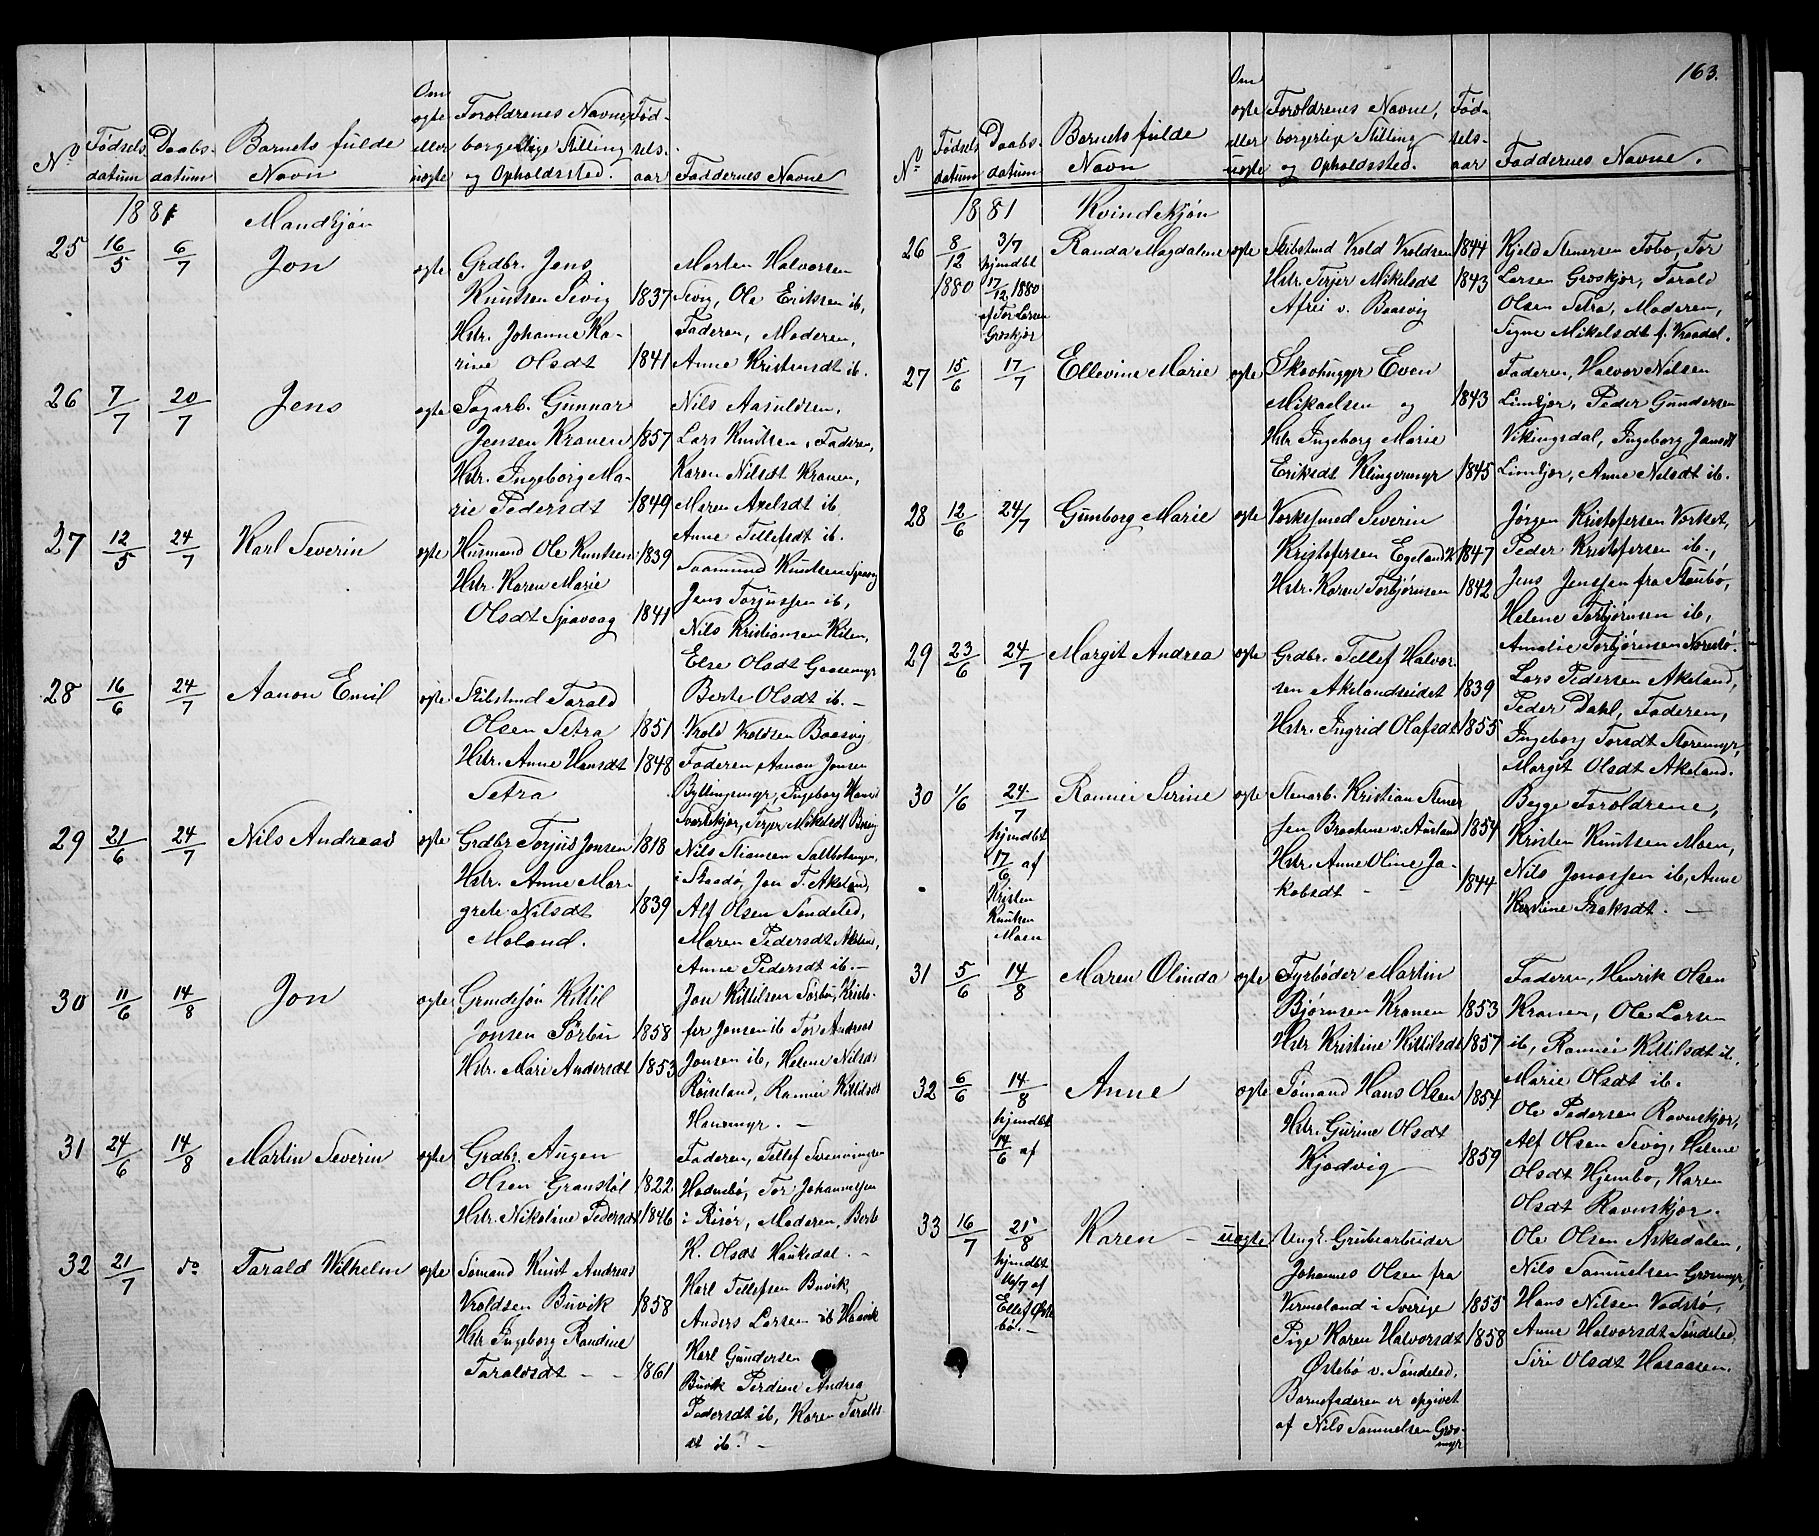 163.
No
Fødsels
datum
Daabs-
datum
Barnets fulde
Navn
Om
ægte
eller
uægte
Forældrenes Navne,
borgerlige Stilling
og Opholdssted.
Fød-
sels-
aar
Faddernes Navne
1881 Mandkjøn
25 16/5 6/7 Jon ægte
Grdbr. Jens
Knutsen Sevig 1837
Hstr. Johanne Ka-
rine Olsdt 1841
Morten Halvorsen
Sevig, Ole Eriksen ib,
Faderen, Moderen,
Anne Kristensdt ib.
26 7/7 20/7 Jens ægte
Sagarb. Gunnar
Jensen Kranen 1857
Hstr. Ingeborg Ma-
rie Pedersdt 1849
Nils Aasuldsen,
Lars Knutsen, Faderen,
Karen Nilsdt Kranen,
Maren Axelsdt ib.
Anne Tellefsdt ib.
27 12/5 24/7 Karl Severin ægte
Husmand Ole Knutsen 1839
Hstr. Karen Marie
Olsdt Sjøvaag 1841
Saamund Knutsen
Jens Torjussen ib,
Nils Kristiansen Kilen,
Else Olsdt Gaasemyr
Berte Olsdt ib. –
28 16/6 24/7 Aanon Emil ægte
Skibstmd Tarald
Olsen Setra 1851
Hstr. Anne Hansdt 1848
Setra
Vrold Vroldsen Baasvig
Faderen, Aanon Jonsen
Byllingsmyr, Ingeborg Hansd
Svartekjær, Terjer Mikelsdt
29 21/6 24/7 Nils Andreas ægte
Grdbr Torjus Jonsen 1818
Hstr. Anne Mar-
grete Nilsdt 1839
Moland.
Nils Stiansen
i Skaadø, Jon T. Akeland,
Alf Olsen Søndeled,
Maren Pedersdt Akeland,
Anne Pedersdt ib. –
30 11/6 14/8 Jon ægte
Kittil
Jonsen Sørbø 1858
Hstr. Mari Andersdt 1853
Jon Kittilsen Sørbø, Kristo-
fer Jonsen ib Tor Andreas
Jonsen ib, Helene Nilsdt
Røinland, Rannei Kittilsdt
Hansmyr. –
31 24/6 14/8 Martin Severin ægte
Grdbr. Augen
Olsen Granstøl 1822
Hstr. Nikoline Pedersdt 1846
Faderen, Tellef Svenningsen
Hødnebø, Tor Johannesen
i Risør, Moderen, Berte
K. Olsdt Haukedal. –
32 21/7 do Tarald Wilhelm ægte
Sømand Knut Andreas
Vroldsen Buvik 1858
Hstr Ingeborg Randine
Taraldsdt – – 1861
Karl Tellefsen Buvik,
Anders Larsen ib
Karl Gundersen
Buvik Perdine Andrea
Pedersdt ib, Karen Taralds-
dt ib. –
No
Fødsels
datum
Daabs-
datum
Barnets fulde
Navn
Om
ægte
eller
uægte
Forældrenes Navne,
borgerlige Stilling
og Opholdssted.
Fød-
sels-
aar
Faddernes Navne.
1881 Kvindekjøn
26 8/12 1880 3/7 Randa Magdalene ægte
hjmdbt
17/12 1880
af Tor Larsen
Groskjær
Skibstmd Vrold Vroldsen 1844
Hstr. Terjer Mikelsdt 1843
Afrei v. Baasvig
Kjeld Stenersen Fobo, Tor
Larsen Groskjær, Tarald
Olsen Setra, Moderen,
Signe Mikelsdt f. Vraadal.
27 15/6 17/7 Ellevine Marie ægte
Skovhugger Even
Mikaelsen og 1843
Hstr Ingeborg Marie
Eriksdt Klingermyr 1845
Faderen, Halvor Nilsen
Limkjær, Peder Gundersen
Vikingsdal, Ingeborg Jansdt
Limkjær, Anne Nilsdt ib.
28 12/6 24/7 Gunborg Marie ægte
Værksfmed Severin
Kristofersen Egeland 1847
Hstr. Karen Torbjørnsen 1842
Jørgen Kristofersen Værket,
Peder Kristofersen ib.,
Jens Jenssen fra Staubø,
Helene Torbjørnsen ib,
Amalie Torbjørnsen
29 23/6 24/7 Margit Andrea ægte
Grdbr. Tellef Halvor-
sen Akelandseidet 1839
Hstr. Ingrid Olafsdt 1855
Lars Pedersen Akeland,
Peder Dahl, Faderen,
Ingeborg Torsdt Storemyr,
Margit Olsdt Akeland.
30 1/6 24/7 Rannei Serine ægte
hjmdbt
17/6 af
Kristen
Knutsen
Moen
Stenarb. Kristian Stener-
sen Braatene v. Ausland 1854
Hstr. Anne Oline Ja-
kobsdt – – 1844
Begge Forældrene,
Kristen Knutsen Moen,
Nils Jonassen ib, Anne
Kirstine Isaksdt. –
31 5/6 14/8 Maren Olinda ægte
Fyrbøder Martin
Bjørnsen Kranen 1853
Hstr Kristine Kittilsdt 1857
Faderen, Henrik Olsen
Kranen, Ole Larsen
ib, Rannei Kittilsdt ib.
Marie Olsdt ib.
32 6/6 14/8 Anne ægte
hjmdbt
14/6 af
Sømand Hans Olsen 1854
Hstr. Gurine Olsdt
Kjødvig 1859
Ole Pedersen Ravnskjær,
Alf Olsen Sevig, Helene
Olsdt Hjembø, Karen
Olsdt Ravnskjær. –
33 16/7 21/8 Karen – uægte
hjmdbt
16/7 af
Ellef Øste-
bø. –
Ungk. Grubearbeider
Johannes Olsen fra
Vermeland i Sverige 1855
Pige Karen Halvorsdt 1858
Østebø v. Søndeled.
Barnefaderen er opgivet
af Nils Samuelsen Gros-
myr
Ole Olsen Askedalen,
Nils Samuelsen Grosmyr,
Hans Nilsen Vadstø,
Anne Halvorsdt Søndeled
Siri Olsdt Hasaasen.